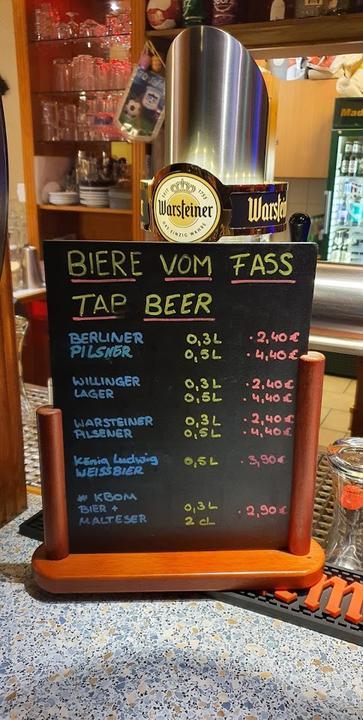 SEIT 1753
Warsteiner
DAS EINZIG WAHRE
Warstei
BIERE VOM FASS
TAP BEER
BERLINER 0,3L · 2,40€
PILSNER 0,5L · 4,40€
WILLINGER 0,3L · 2,40€
LAGER 0,5L · 4,40€
WARSTEINER 0,3L · 2,40€
PILSENER 0,5L · 4,40€
König Ludwig 0,5L · 3,90€
WEISSBIER
# KBOM
BIER + 0,3L · 2,90€
MALTESER 2 cL